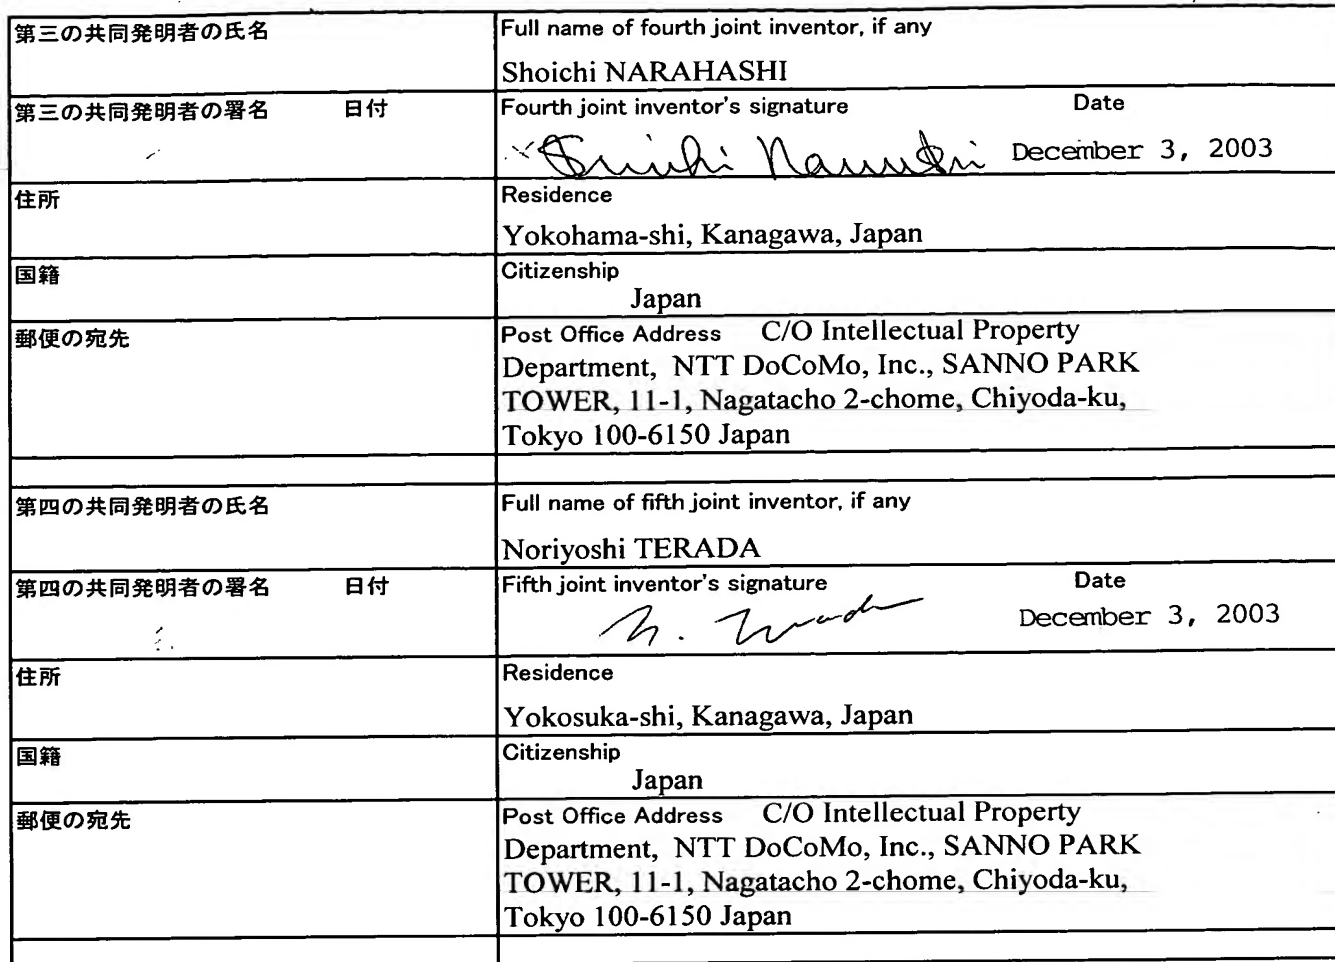 第三の共同発明者の氏名
Full name of fourth joint inventor, if any
Shoichi NARAHASHI
第三の共同発明者の署名 日付
Fourth joint inventor's signature Date
December 3, 2003
住所
Residence
Yokohama-shi, Kanagawa, Japan
国籍
Citizenship
Japan
郵便の宛先
Post Office Address C/O Intellectual Property
Department, NTT DoCoMo, Inc., SANNO PARK
TOWER, 11-1, Nagatacho 2-chome, Chiyoda-ku,
Tokyo 100-6150 Japan
第四の共同発明者の氏名
Full name of fifth joint inventor, if any
Noriyoshi TERADA
第四の共同発明者の署名 日付
Fifth joint inventor's signature Date
December 3, 2003
住所
Residence
Yokosuka-shi, Kanagawa, Japan
国籍
Citizenship
Japan
郵便の宛先
Post Office Address C/O Intellectual Property
Department, NTT DoCoMo, Inc., SANNO PARK
TOWER, 11-1, Nagatacho 2-chome, Chiyoda-ku,
Tokyo 100-6150 Japan